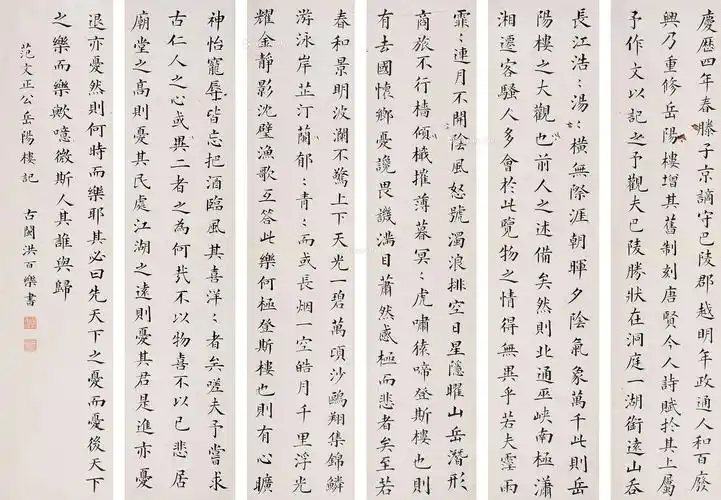 慶歷四年春滕子京謫守巴陵郡越明年政通人和百廢
興乃重修岳陽樓增其舊制刻唐賢今人詩賦於其上屬
予作文以記之予觀夫巴陵勝狀在洞庭一湖銜遠山吞
長江浩〻湯〻橫無際涯朝暉夕陰氣象萬千此則岳
陽樓之大觀也前人之述備矣然則北通巫峽南極瀟
湘遷客騷人多會於此覽物之情得無異乎若夫霪雨
霏〻連月不開陰風怒號濁浪排空日星隱曜山岳潛形
商旅不行檣傾檝摧薄暮冥〻虎嘯猿啼登斯樓也則
有去國懷鄉憂讒畏譏滿目蕭然感極而悲者矣至若
春和景明波瀾不驚上下天光一碧萬頃沙鷗翔集錦鱗
游泳岸芷汀蘭郁〻青〻而或長烟一空皓月千里浮光
耀金靜影沈璧漁歌互答此樂何極登斯樓也則有心曠
神怡寵辱皆忘把酒臨風其喜洋〻者矣嗟夫予嘗求
古仁人之心或異二者之為何哉不以物喜不以己悲居
廟堂之高則憂其民處江湖之遠則憂其君是進亦憂
退亦憂然則何時而樂耶其必曰先天下之憂而憂後天下
之樂而樂歟噫微斯人其誰與歸
范文正公岳陽樓記 古閩洪百樂書